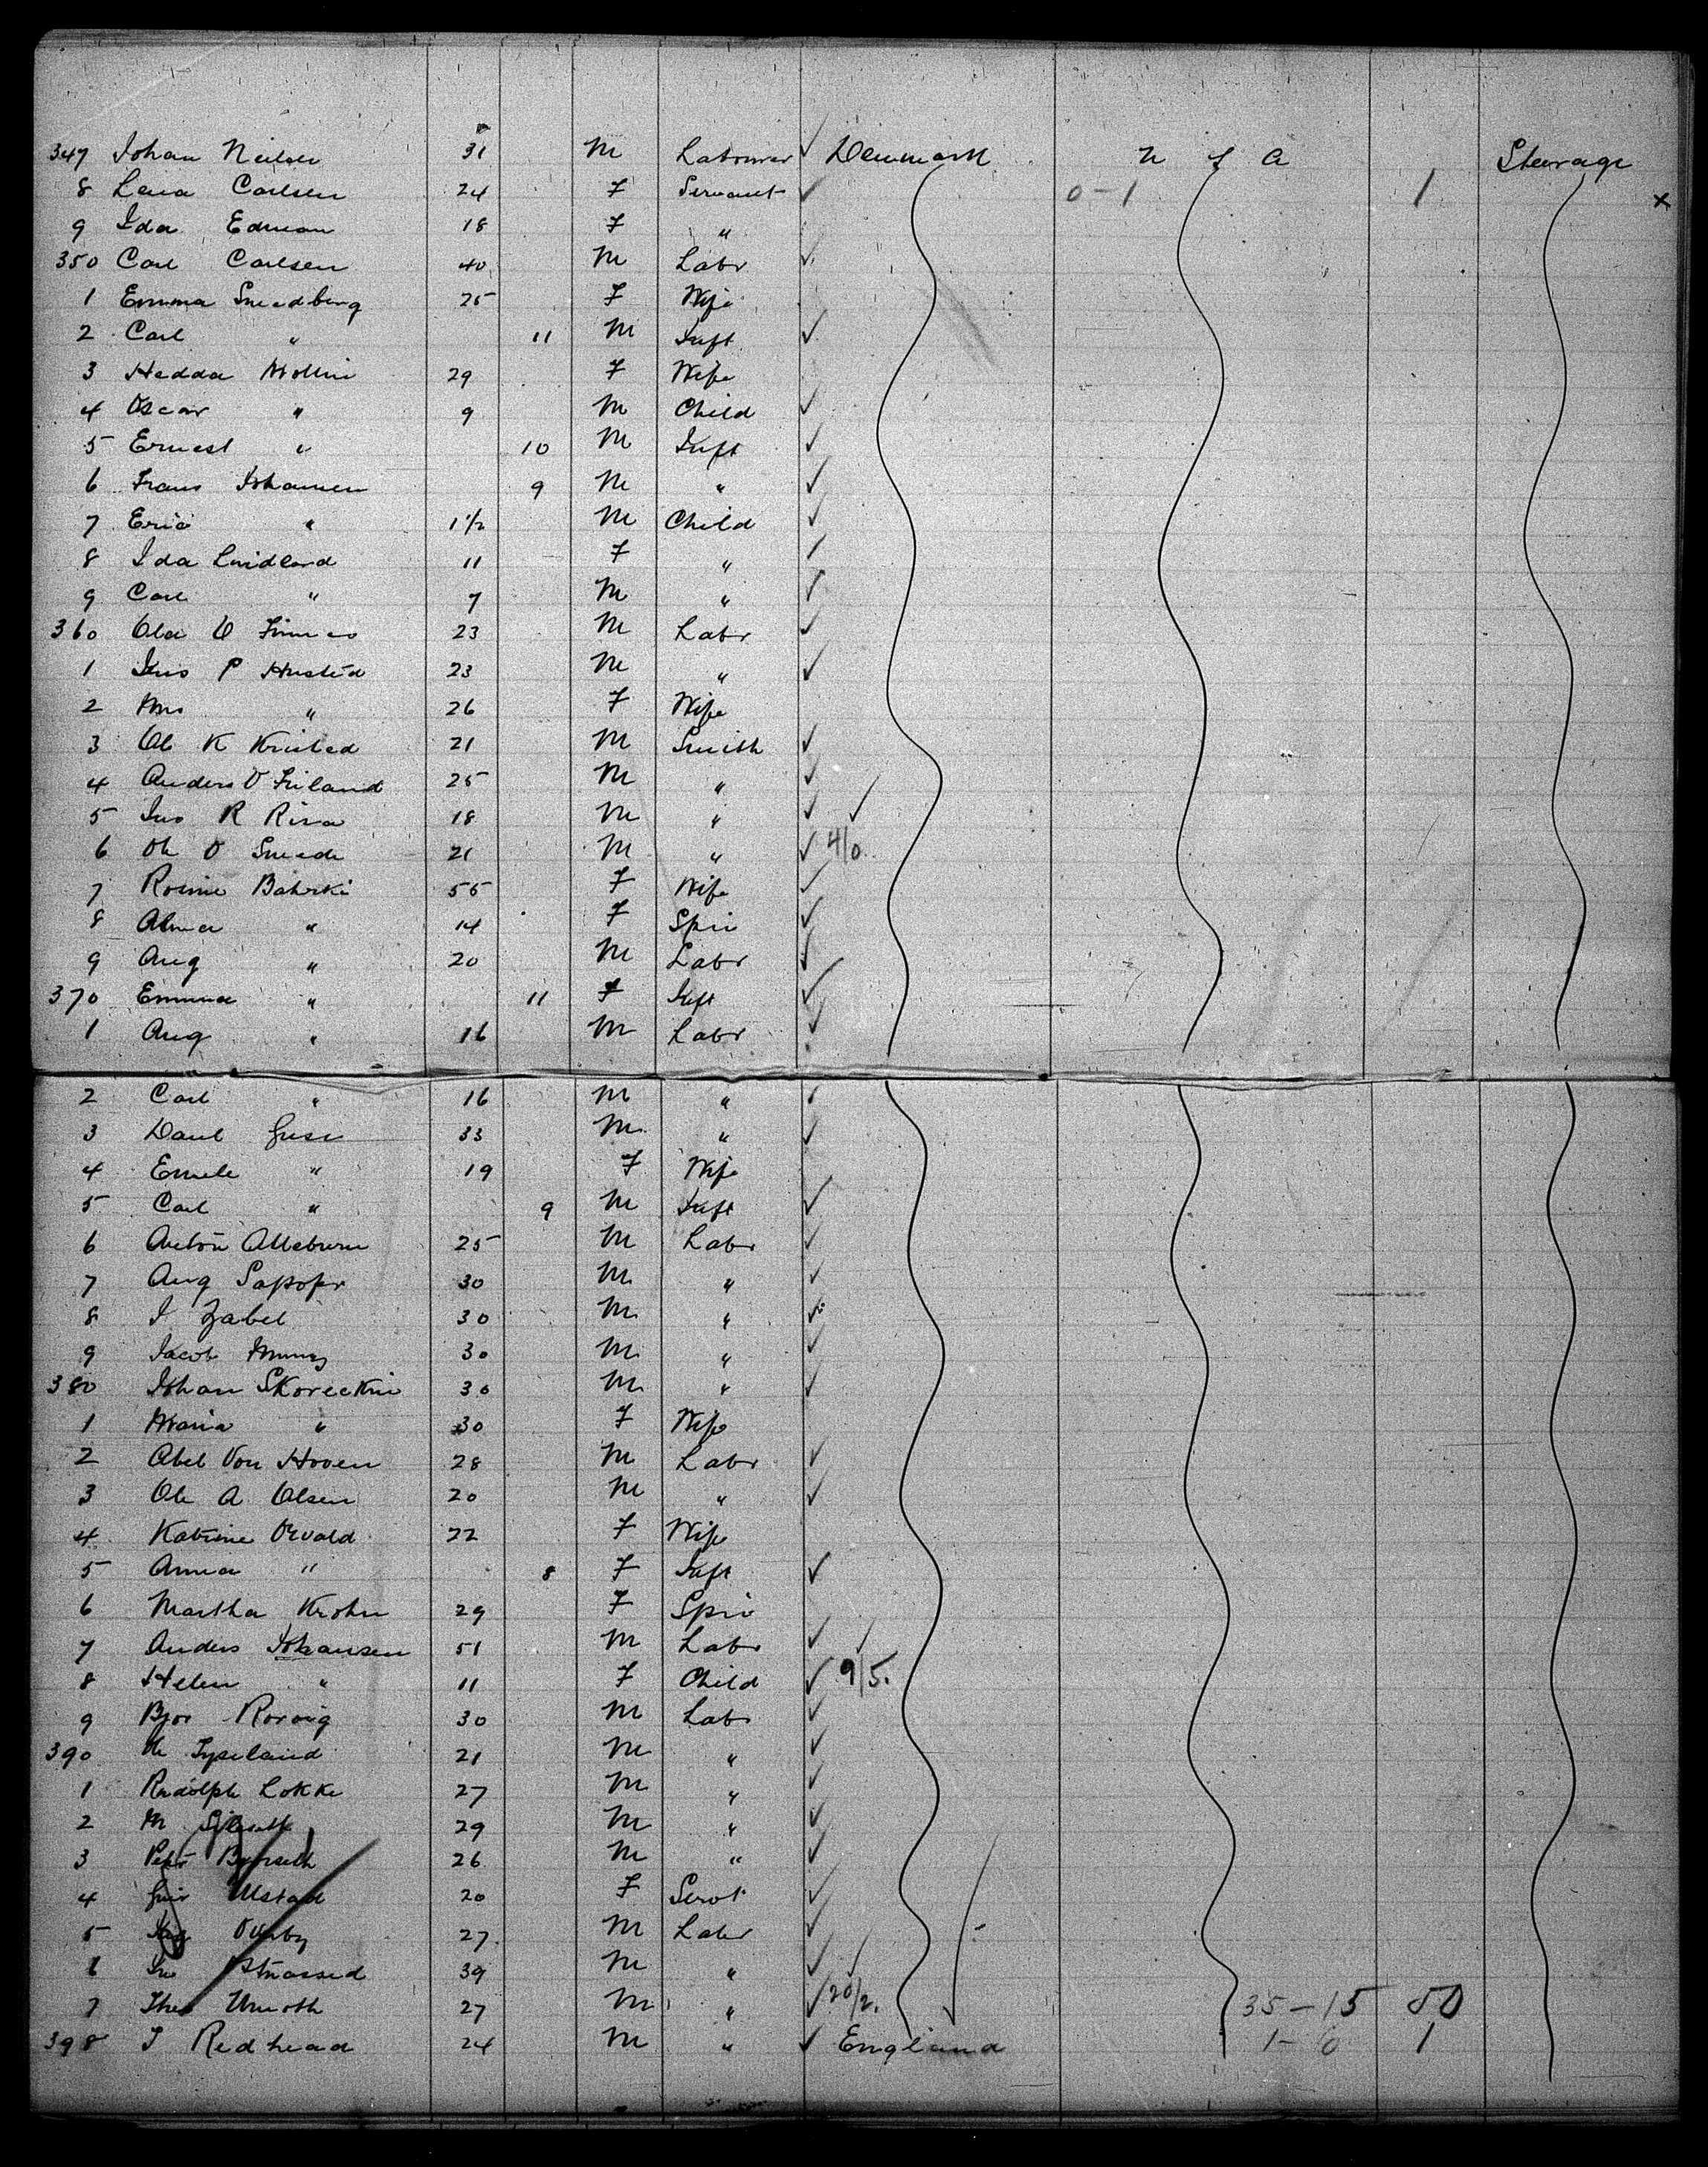 347 Johan Neilsen 31 M Labourer ✓ Denmark U S A Steerage
8 Lena Carlsen 24 F Servant ✓ 0-1 1 x
9 Ida Edman 18 F "
350 Carl Carlsen 40 M Labr ✓
1 Emma Swedberg 25 F Wife
2 Carl " 11 M Inft ✓
3 Hedda Mollin 29 F Wife
4 Oscar " 9 M Child ✓
5 Ernest " 10 M Inft ✓
6 Frans Johansen 9 M " ✓
7 Eric " 1 1/2 M Child ✓
8 Ida 11 F " ✓
9 Carl " 7 M " ✓
360 Ola O 23 M Labr ✓
1 Jens P Husted 23 M " ✓
2 Mrs " 26 F Wife
3 Ole K 21 M Smith ✓
4 Anders O 25 M " ✓
5 Jno R Risa 18 M " ✓ ✓
6 Ole O 21 M " ✓ 4/0
7 Bahrki 55 F Wife ✓
8 Alma " 14 F Spin ✓
9 Aug " 20 M Labr ✓
370 Emma " 11 F Inft ✓
1 Aug " 16 M Labr ✓
2 Carl " 16 M " ✓
3 Danl Guse 33 M " ✓
4 Emele " 19 F Wife
5 Carl " 9 M Inft ✓
6 Anton 25 M Labr ✓
7 Aug 30 M " ✓
8 J Zabel 30 M " ✓
9 Jacob 30 M " ✓
380 Johan Skoreckni 30 M " ✓
1 Maria " 30 F Wife
2 Abel Von Hoven 28 M Labr ✓
3 Ole A Olsen 20 M " ✓
4 Katrine Orvald 22 F Wife
5 Anna " 8 F Inft ✓
6 Martha Krohn 29 F Spin
7 Anders Johansen 51 M Labr ✓ ✓
8 Helen " 11 F Child ✓ 9/5.
9 Bjor Rorvig 30 M Labr ✓
390 Ole 21 M " ✓
1 Rudolph Lokke 27 M " ✓
2 M 29 M " ✓
3 Peter 26 M " ✓
4 Ulstad 20 F Servt ✓
5 27 M Labr ✓
6 39 M " ✓ ✓
7 Theo 27 M " ✓ 20/2. 35-15 50
398 J Redhead 24 M " ✓ England 1-0 1